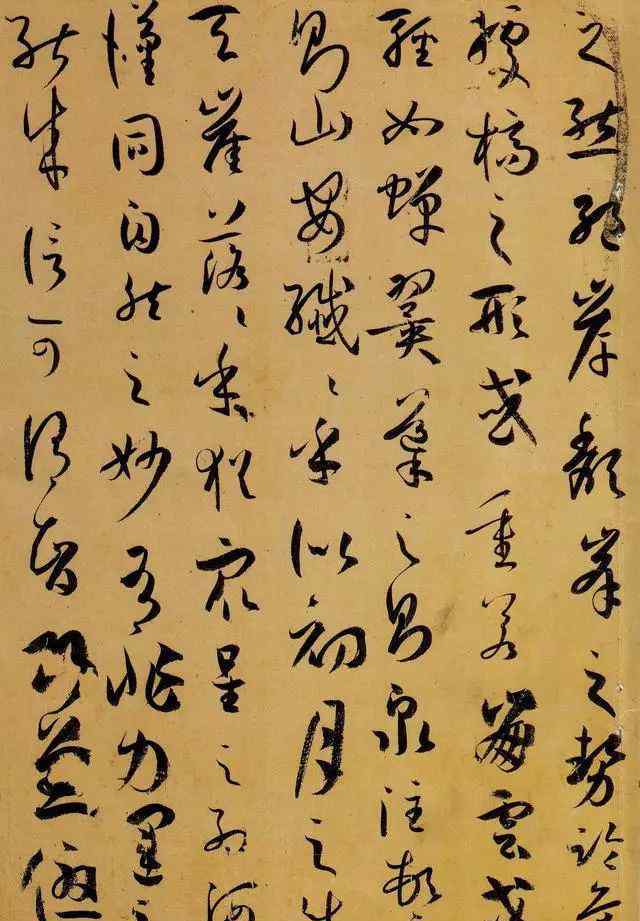 之態絕岸頹峯之勢臨危
據槁之形或重若崩雲或
輕如蟬翼導之則泉注頓之
則山安纖纖乎似初月之出
天崖落落乎猶衆星之列河
漢同自然之妙有非力運之
能成信可謂智巧兼優